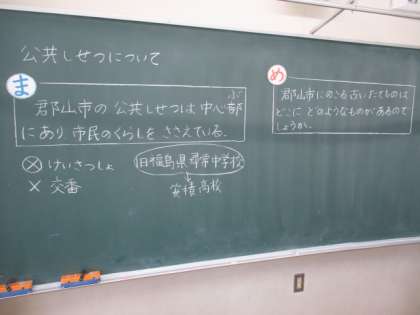 公共しせつについて
ま
郡山市の公共しせつは中心部
ぶ
にあり市民のくらしをささえている.
⊗ けいさつしょ
× 交番
旧福島県尋常中学校
↓
安積高校
め
郡山市にのこる古いたてものは
どこに どのようなものがあるので
しょうか.